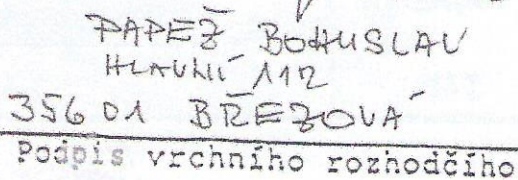 PAPEŽ BOHUSLAV
HLAVNÍ 112
356 01 BŘEZOVÁ
Podpis vrchního rozhodčího